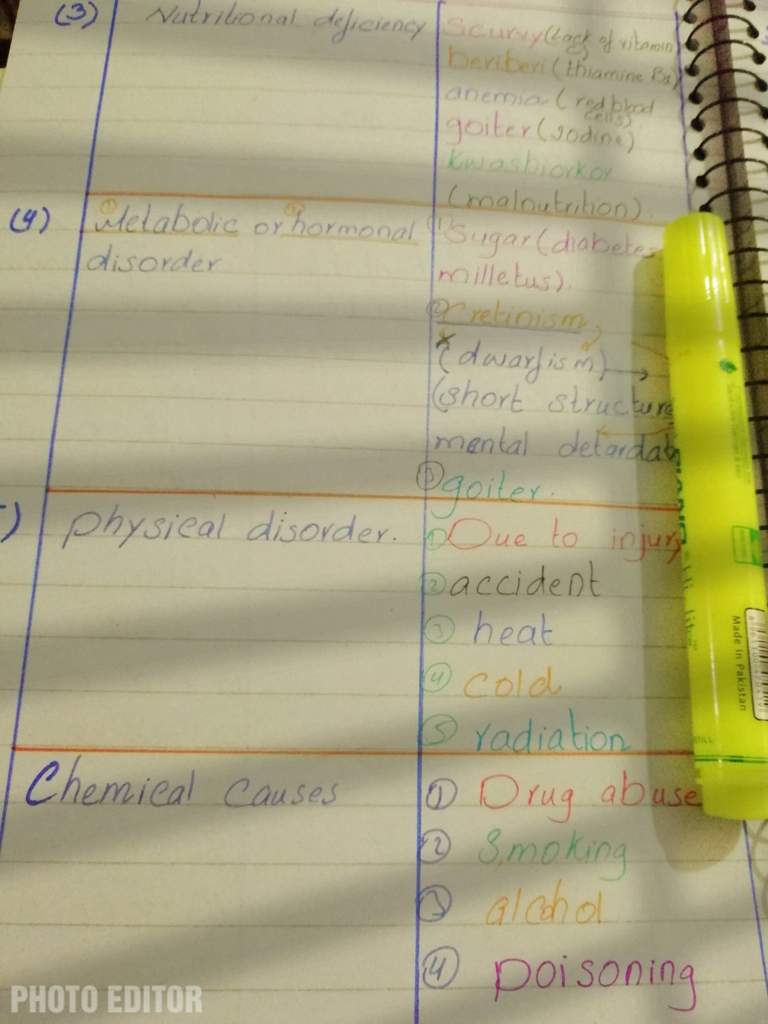 (3) Nutritional deficiency
Scurvy (Lack of vitamin
beriberi (thiamine
anemia (red blood
cells)
goiter (Iodine)
Kwashiorkor
(malnutrition)
(4) ① Metabolic or ② hormonal
disorder
① Sugar (diabetes
milletus).
② Cretinism,
(dwarfism) →
(short structure
mental
③ goiter.
) Physical disorder.
① Due to injury
② accident
③ heat
④ cold
⑤ radiation
Chemical causes
① Drug abuse
② Smoking
③ alcohol
④ poisoning
Made in Pakistan
PHOTO EDITOR